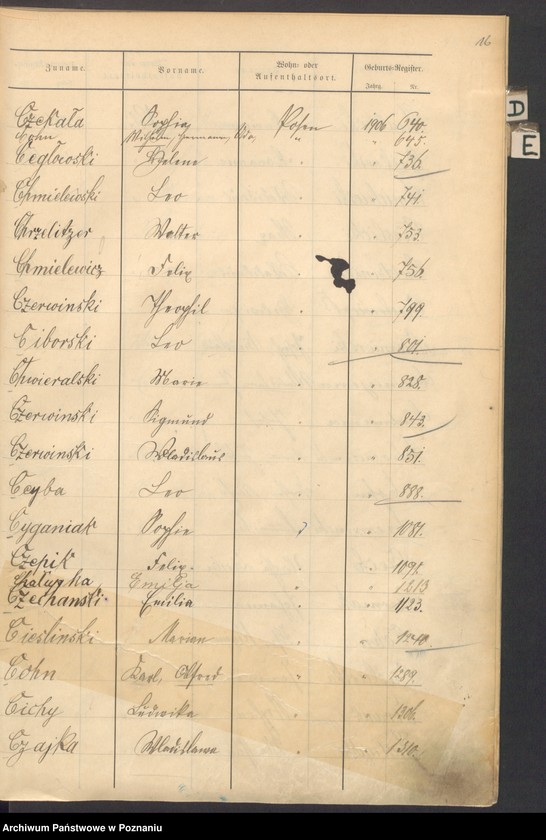 16
Zuname. Vorname. Wohn- oder Aufenthaltsort. Geburts-Register.
Jahrg. Nr.
Czekała Sophie Posen 1906 640.
Cohn Wilhelm, Hermann, " " 645.
Cegłowski Helene " " 736.
Chmielewski Leo " " 741.
Chrzelitzer Walter " " 753.
Chmielewicz Felix " " 756.
Czerwinski Theophil " " 799.
Ciborski Leo " " 801.
Chwieralski Marie " " 828.
Czerwinski Sigmund " " 843.
Czerwinski Wladislaus " " 851.
Ceyba Leo " " 888.
Cyganiak Sophie " " 1081.
Czepik Felix. " " 1091.
Emilia " " 1213
Czechanski Emilia " " 1123.
Cieslinski Marian " " 1240.
Cohn Karl, Alfred " " 1289.
Cichy Ludwika " " 1306.
Czajka Wladislawa " " 1310.
D
E
Archiwum Państwowe w Poznaniu